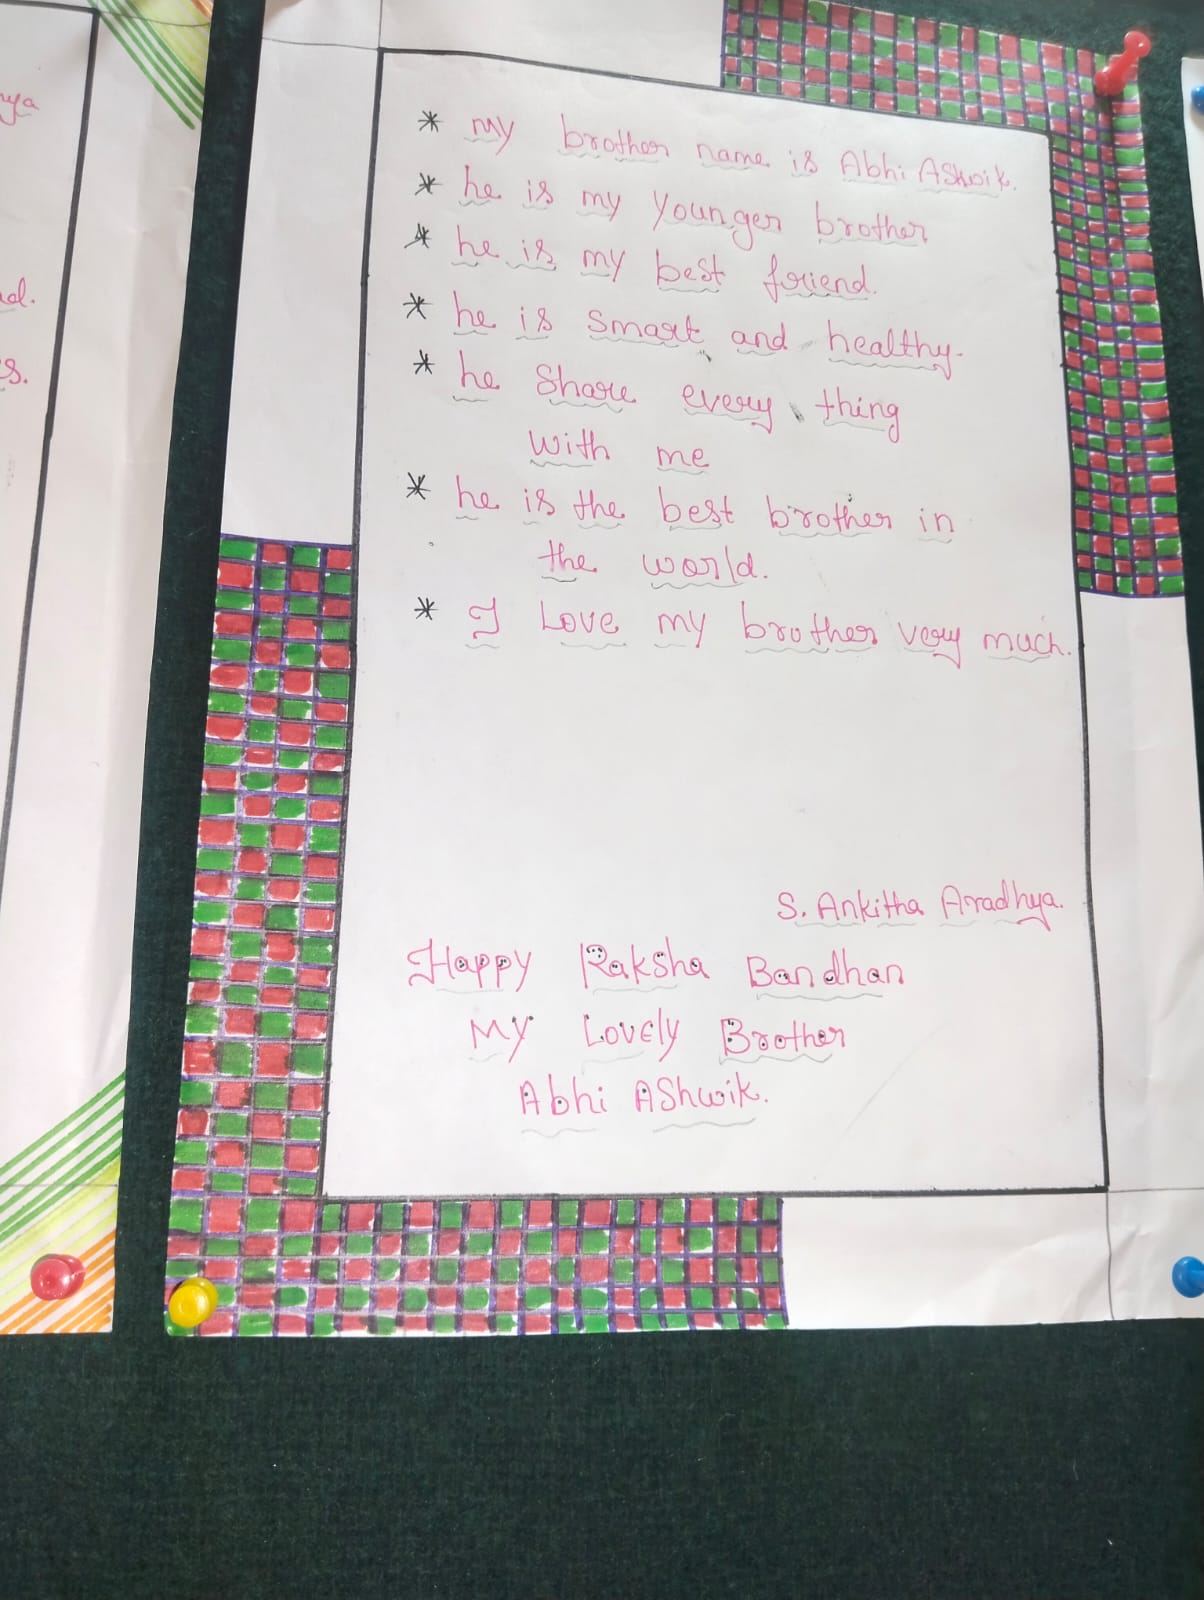 ya
d.
s.
* my brother name is Abhi AShwik.
* he is my younger brother
* he is my best friend.
* he is smart and healthy.
* he Share every thing
with me
* he is the best brother in
the world.
* I Love my brother very much.
S. Ankitha Aradhya.
Happy Raksha Bandhan
My Lovely Brother
Abhi AShwik.